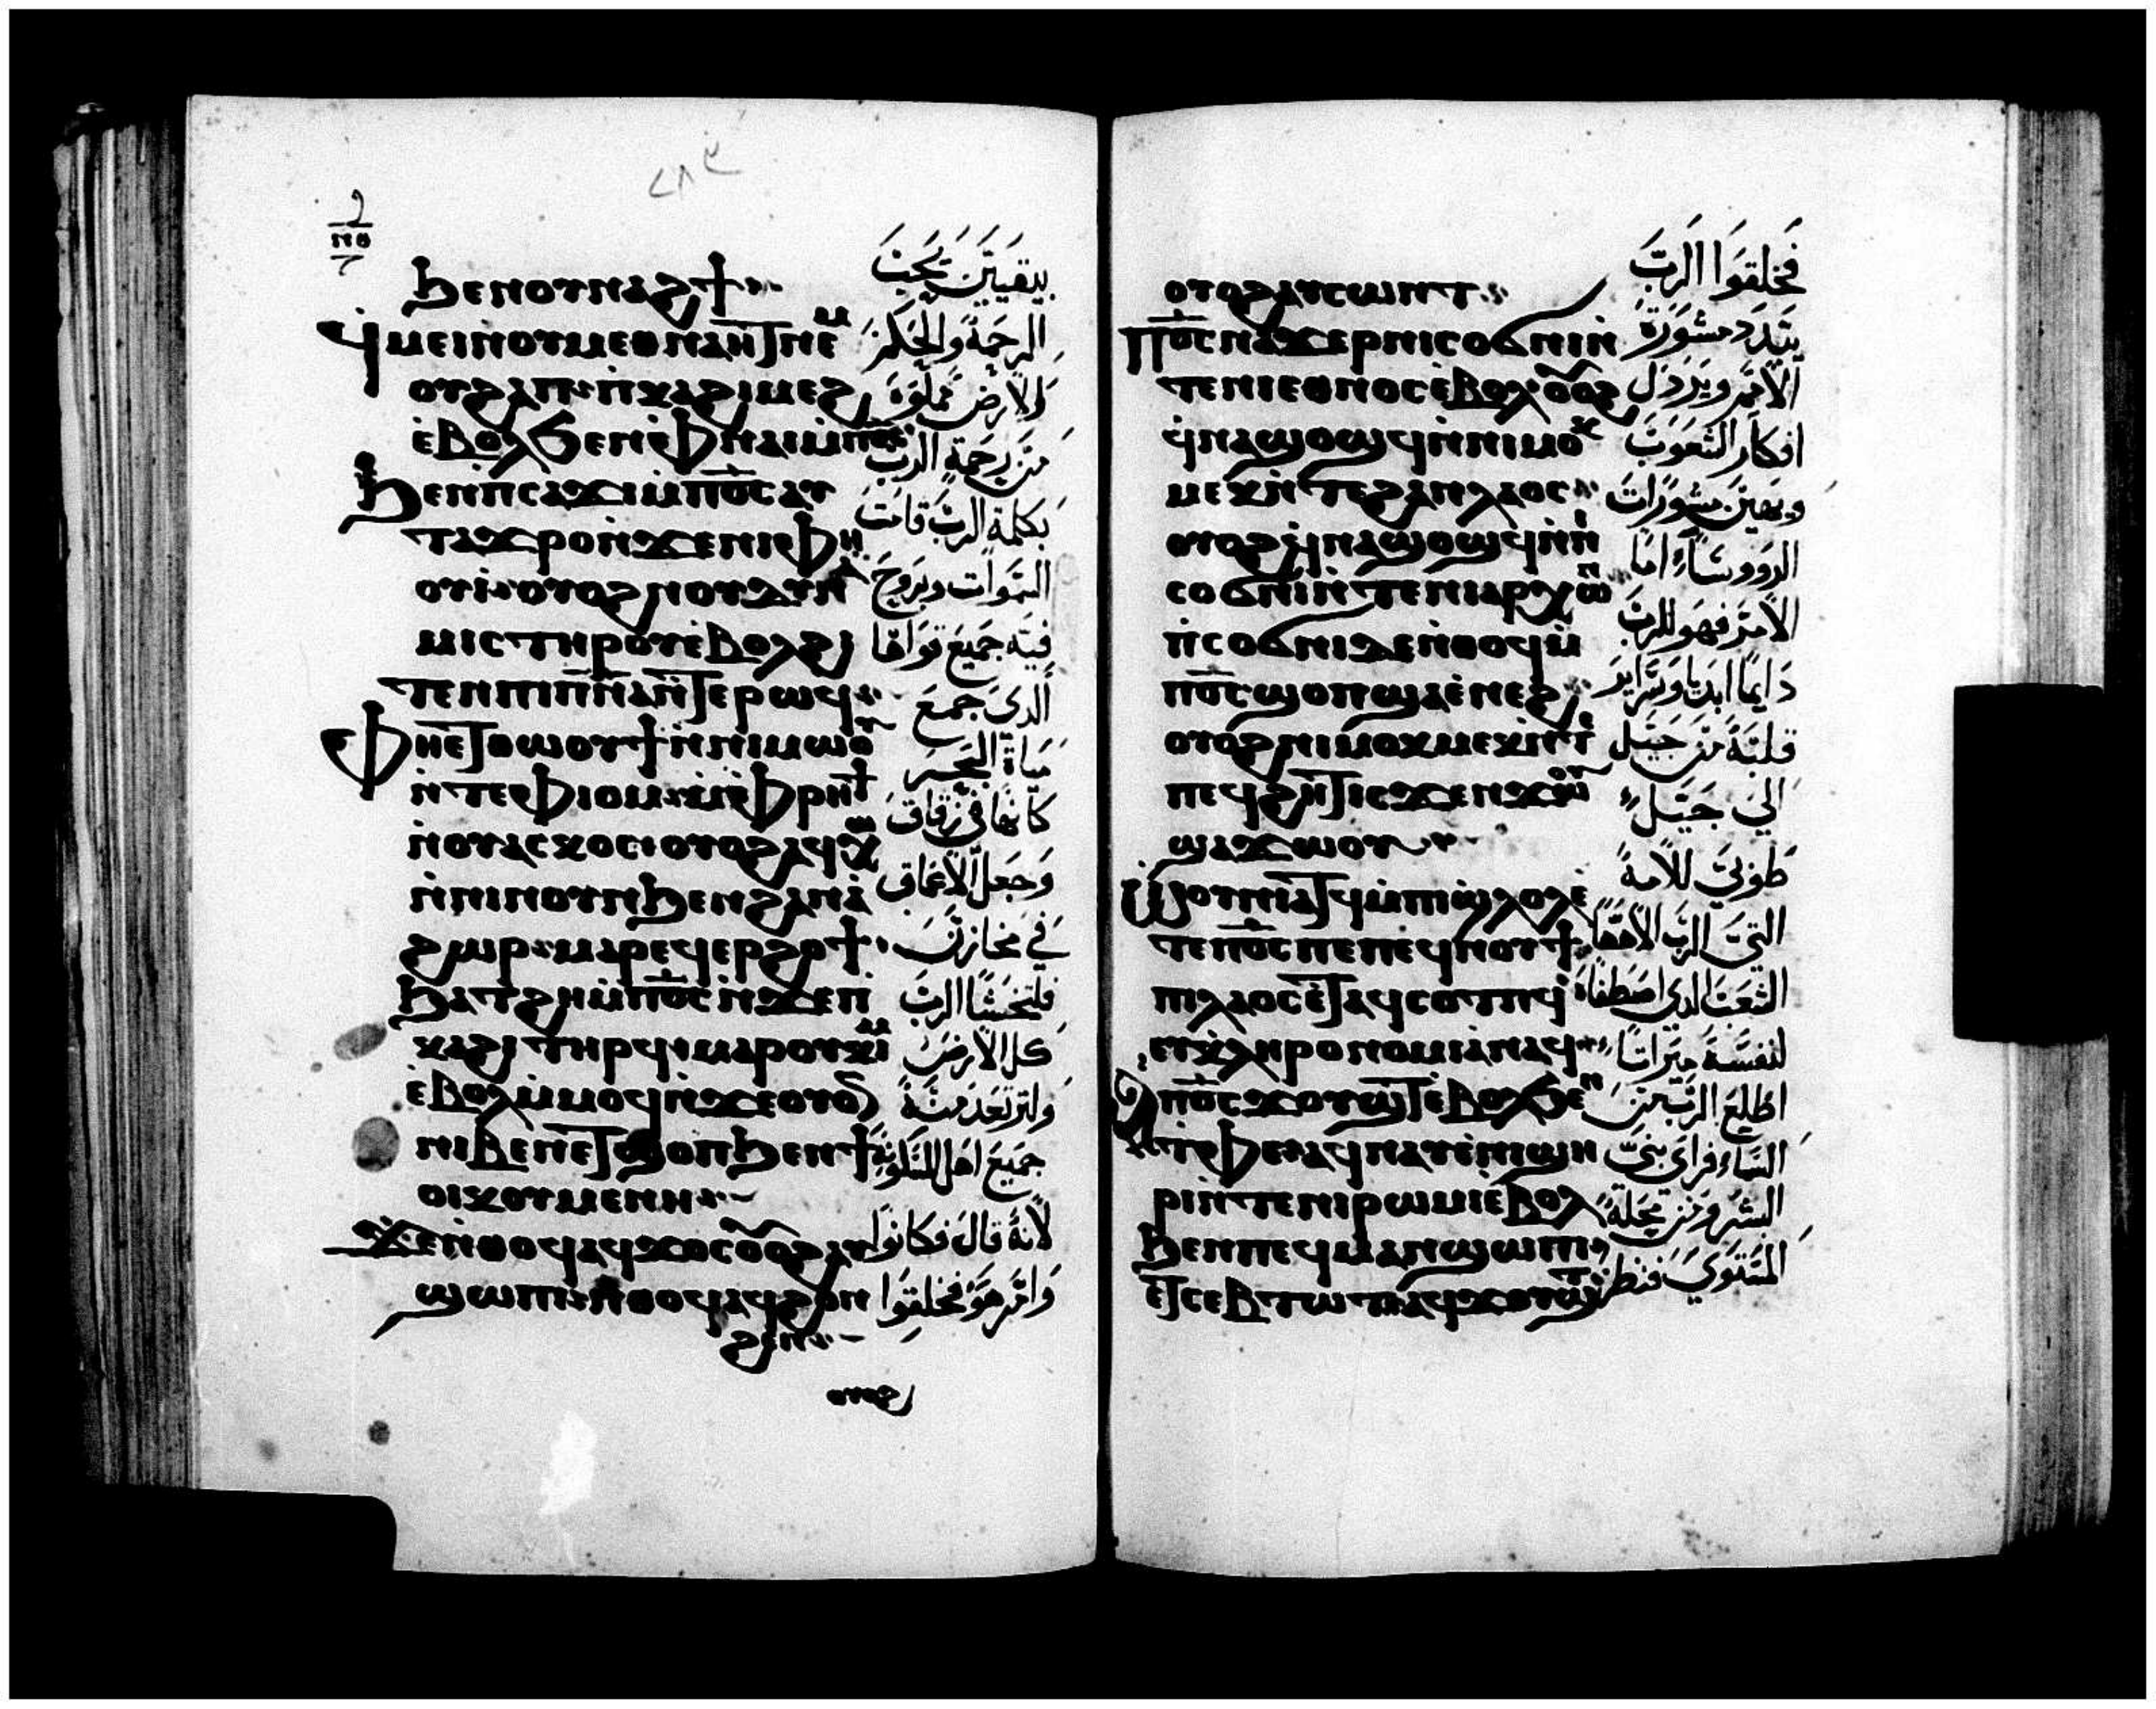 ϧⲉⲛⲟⲩⲛⲁϩϯ
ϥⲙⲉⲓⲛⲟⲩⲙⲉⲑⲛⲁⲏⲧⲛⲉⲙ
ⲟⲩϩⲁⲡ ⲡⲕⲁϩⲓⲙⲉϩ
ⲉⲃⲟⲗϧⲉⲛ ⲫⲛⲁⲓⲙⲡⲟⲥ
ϧⲉⲛⲡⲥⲁϫⲓⲙⲡⲟⲥⲁⲩ
ⲧⲁϫⲣⲟⲛϫⲉⲛⲓⲫⲏ
ⲟⲩⲓ ⲟⲩⲟϩⲛⲟⲩⲇⲩⲛⲁ
ⲙⲓⲥⲧⲏⲣⲟⲩⲉⲃⲟⲗϩⲓ
ⲧⲉⲛⲡⲓⲡⲛⲁⲛⲧⲉⲣⲱϥ
ⲫⲏⲉⲧⲑⲱⲟⲩϯⲛⲛⲓⲙⲱⲟⲩ
ⲛⲧⲉⲫⲓⲟⲙ ⲙⲫⲣⲏϯ
ⲛⲟⲩⲁⲥⲕⲟⲥ ⲟⲩⲟϩⲁϥⲭⲱ
ⲛⲛⲓⲛⲟⲩⲛϧⲉⲛϩⲁⲛⲁ
ϩⲱⲣ ⲙⲁⲣⲉϥⲉⲣϩⲟϯ
ϧⲁⲧϩⲏⲙⲡⲟⲥⲛϫⲉⲡ
ⲕⲁϩⲓⲧⲏⲣϥ ⲙⲁⲣⲟⲩⲕⲓⲙ
ⲉⲃⲟⲗⲙⲙⲟϥⲛϫⲉⲟⲩⲟⲛ
ⲛⲓⲃⲉⲛⲉⲧϣⲟⲡϧⲉⲛϯ
ⲟⲓⲕⲟⲩⲙⲉⲛⲏ
ϫⲉⲛⲑⲟϥⲁϥϫⲟⲥⲟⲩⲟϩⲁⲩ
ϣⲱⲡⲓ ⲛⲑⲟϥⲁϥϩⲟⲛ
ϩⲉⲛ
ⲟⲩⲟϩ
الرحمة والحكم
والارض مملوة
من رحمة الرب
بكلمة الرب قامت
السموات وبروح
فيه جميع قواها
الدي جمع
مياة البحر
كانها في زقاق
وجعل الاعماق
في مخازن
فلتخشا الرب
كل الارض
جميع اهل المسكونة
لانة قال فكانوا
وامر هو فخلقوا
ⲟⲩⲟϩⲁⲩⲥⲱⲛⲧ
ⲡⲟⲥⲛⲁϫⲉⲣⲛⲓⲥⲟϭⲛⲓⲛ
ⲧⲉⲛⲓⲉⲑⲛⲟⲥⲉⲃⲟⲗⲟⲩⲟϩ
ϥⲛⲁϣⲟϣϥⲛⲛⲓⲙⲟⲕ
ⲙⲉⲕⲛⲧⲉϩⲁⲛⲗⲁⲟⲥ
ⲟⲩⲟϩϥⲛⲁϣⲟϣϥⲛⲛ
ⲥⲟϭⲛⲓⲛⲧⲉⲛⲓⲁⲣⲭⲱⲛ
ⲡⲥⲟϭⲛⲓⲇⲉⲛⲑⲟϥⲙ
ⲡⲟⲥϣⲟⲡϣⲁⲉⲛⲉϩ
ⲟⲩⲟϩⲛⲓⲙⲟⲕⲙⲉⲕⲛⲧⲉ
ⲡⲉϥϩⲏⲧⲓⲥϫⲉⲛϫⲱⲟⲩ
ϣⲁϫⲱⲟⲩ
ⲱⲟⲩⲛⲓⲁⲧϥⲙⲡⲓϣⲗⲟⲗⲉ
ⲧⲉⲡⲟⲥⲡⲉⲡⲉϥⲛⲟⲩϯ
ⲡⲓⲗⲁⲟⲥⲉⲧⲁϥⲥⲟⲧⲡϥ
ⲉⲩⲕⲗⲏⲣⲟⲛⲟⲙⲓⲁⲛⲁϥ
ⲁⲡⲟⲥϫⲟⲩϣⲧⲉⲃⲟⲗϧⲉⲛ
ⲧⲫⲉⲁϥⲛⲁⲩⲉⲛⲓϣⲏ
ⲣⲓⲛⲧⲉⲛⲓⲣⲱⲙⲓⲉⲃⲟⲗ
ϧⲉⲛⲡⲉϥⲙⲁⲛϣⲱⲡⲓ
ⲉⲧⲥⲉⲃⲧⲱⲧⲁϥϫⲟⲩϣⲧ
فخلقوا الرب
يبدد مشورة
الامم ويردل
افكار الشعوب
الامر فهو للرب
قلبة من جيل
الي جيل
طوبي للامة
التي الرب الاهها
الشعب الدي اصطفاة
لنفسة ميراتا
اطلع الرب من
السماء فراي بني
البشر ومن محلة
المستوي فنظر